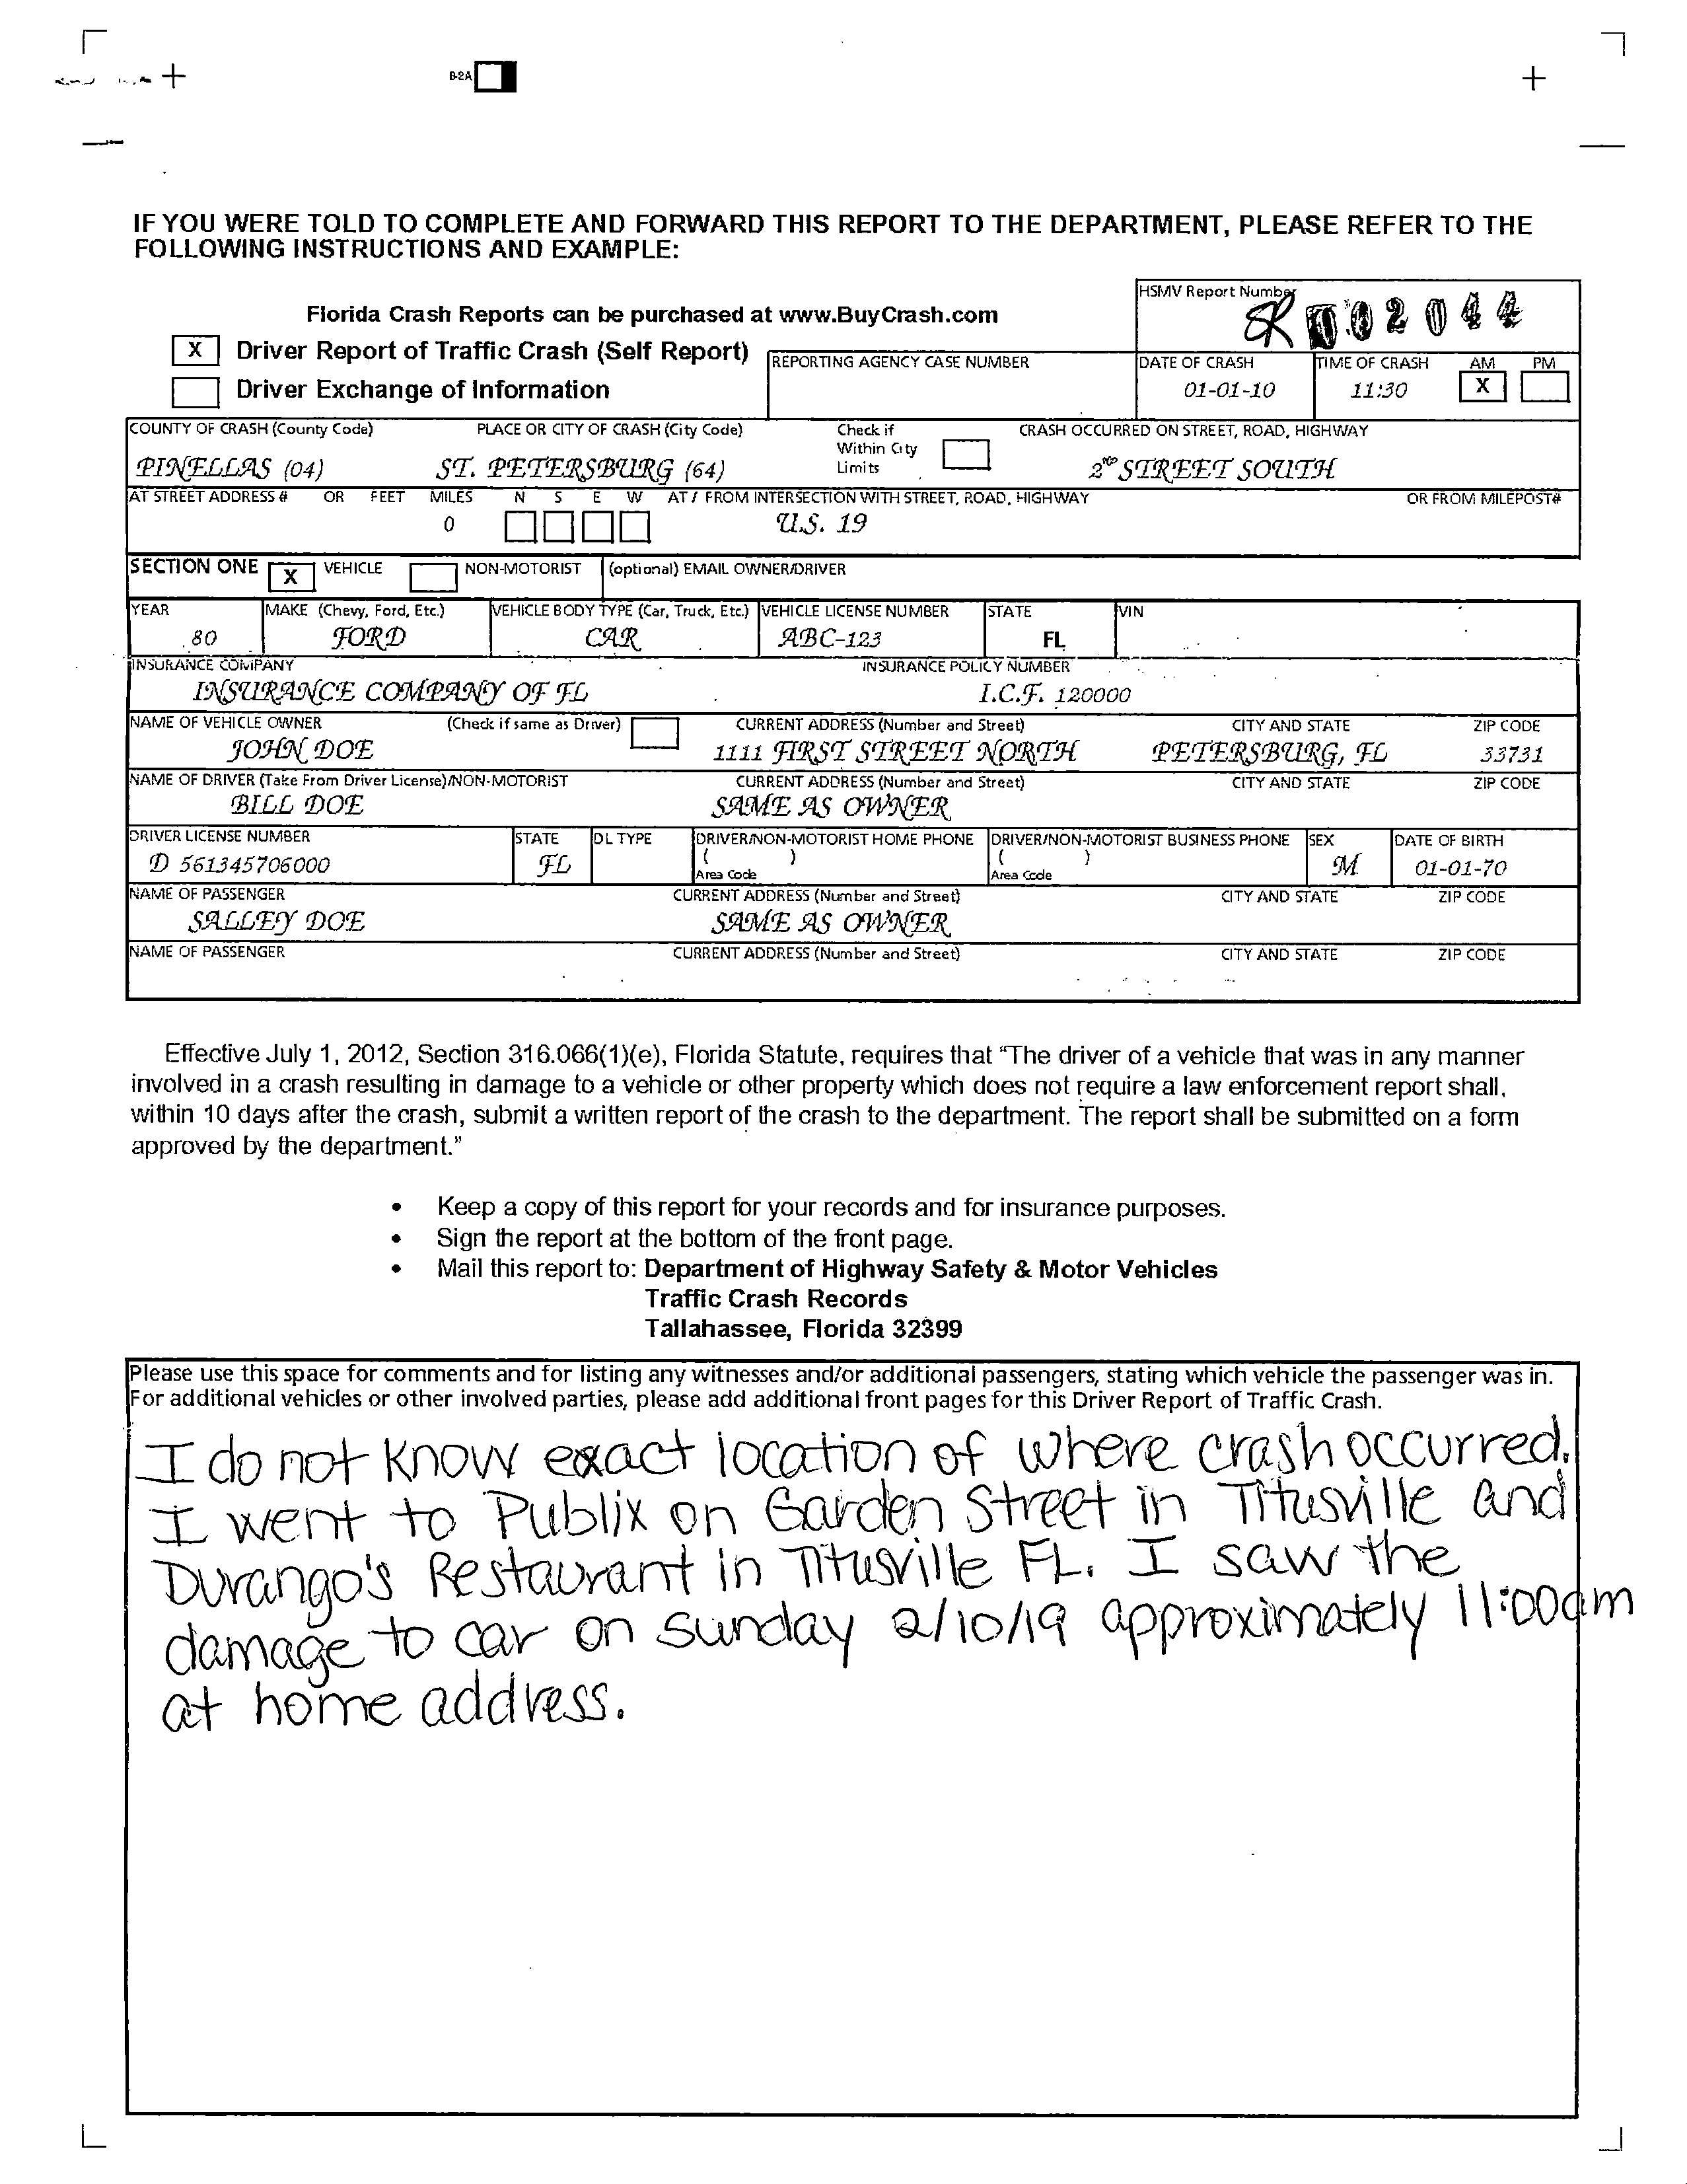 B-2A
IF YOU WERE TOLD TO COMPLETE AND FORWARD THIS REPORT TO THE DEPARTMENT, PLEASE REFER TO THE
FOLLOWING INSTRUCTIONS AND EXAMPLE:
Florida Crash Reports can be purchased at www.BuyCrash.com
HSMV Report Number
02044
X Driver Report of Traffic Crash (Self Report)
Driver Exchange of Information
REPORTING AGENCY CASE NUMBER
DATE OF CRASH TIME OF CRASH AM PM
01-01-10 11:30 X
COUNTY OF CRASH (County Code) PLACE OR CITY OF CRASH (City Code) Check if Within City Limits CRASH OCCURRED ON STREET, ROAD, HIGHWAY
PINELLAS (04) ST. PETERSBURG (64) 2ND STREET SOUTH
AT STREET ADDRESS # OR FEET MILES N S E W AT / FROM INTERSECTION WITH STREET, ROAD, HIGHWAY OR FROM MILEPOST#
0 U.S. 19
SECTION ONE X VEHICLE NON-MOTORIST (optional) EMAIL OWNER/DRIVER
YEAR MAKE (Chevy, Ford, Etc.) VEHICLE BODY TYPE (Car, Truck, Etc.) VEHICLE LICENSE NUMBER STATE VIN
80 FORD CAR ABC-123 FL
INSURANCE COMPANY INSURANCE POLICY NUMBER
INSURANCE COMPANY OF FL I.C.F. 120000
NAME OF VEHICLE OWNER (Check if same as Driver) CURRENT ADDRESS (Number and Street) CITY AND STATE ZIP CODE
JOHN DOE 1111 FIRST STREET NORTH PETERSBURG, FL 33731
NAME OF DRIVER (Take From Driver License)/NON-MOTORIST CURRENT ADDRESS (Number and Street) CITY AND STATE ZIP CODE
BILL DOE SAME AS OWNER
DRIVER LICENSE NUMBER STATE DL TYPE DRIVER/NON-MOTORIST HOME PHONE DRIVER/NON-MOTORIST BUSINESS PHONE SEX DATE OF BIRTH
D 561345706000 FL ( ) Area Code ( ) Area Code M 01-01-70
NAME OF PASSENGER CURRENT ADDRESS (Number and Street) CITY AND STATE ZIP CODE
SALLEY DOE SAME AS OWNER
NAME OF PASSENGER CURRENT ADDRESS (Number and Street) CITY AND STATE ZIP CODE
Effective July 1, 2012, Section 316.066(1)(e), Florida Statute, requires that “The driver of a vehicle that was in any manner
involved in a crash resulting in damage to a vehicle or other property which does not require a law enforcement report shall,
within 10 days after the crash, submit a written report of the crash to the department. The report shall be submitted on a form
approved by the department.”
• Keep a copy of this report for your records and for insurance purposes.
• Sign the report at the bottom of the front page.
• Mail this report to: Department of Highway Safety & Motor Vehicles
Traffic Crash Records
Tallahassee, Florida 32399
Please use this space for comments and for listing any witnesses and/or additional passengers, stating which vehicle the passenger was in.
For additional vehicles or other involved parties, please add additional front pages for this Driver Report of Traffic Crash.
I do not know exact location of where crash occurred.
I went to Publix on Garden Street in Titusville and
Durango's Restaurant in Titusville FL. I saw the
damage to car on Sunday 2/10/19 approximately 11:00am
at home address.